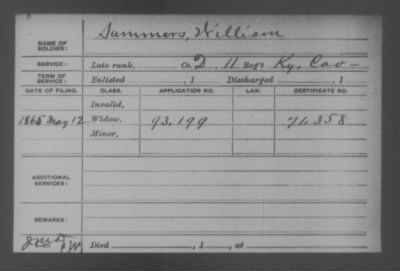 Summers, William
NAME OF SOLDIER:
SERVICE: Late rank, Co. D, 11 Reg't Ky. Cav —
TERM OF SERVICE: Enlisted , 1 Discharged , 1
DATE OF FILING. CLASS. APPLICATION NO. LAW. CERTIFICATE NO.
Invalid,
1865 May 12 Widow, 93.199 71.358
Minor,
ADDITIONAL SERVICES:
REMARKS:
Died , 1 , at